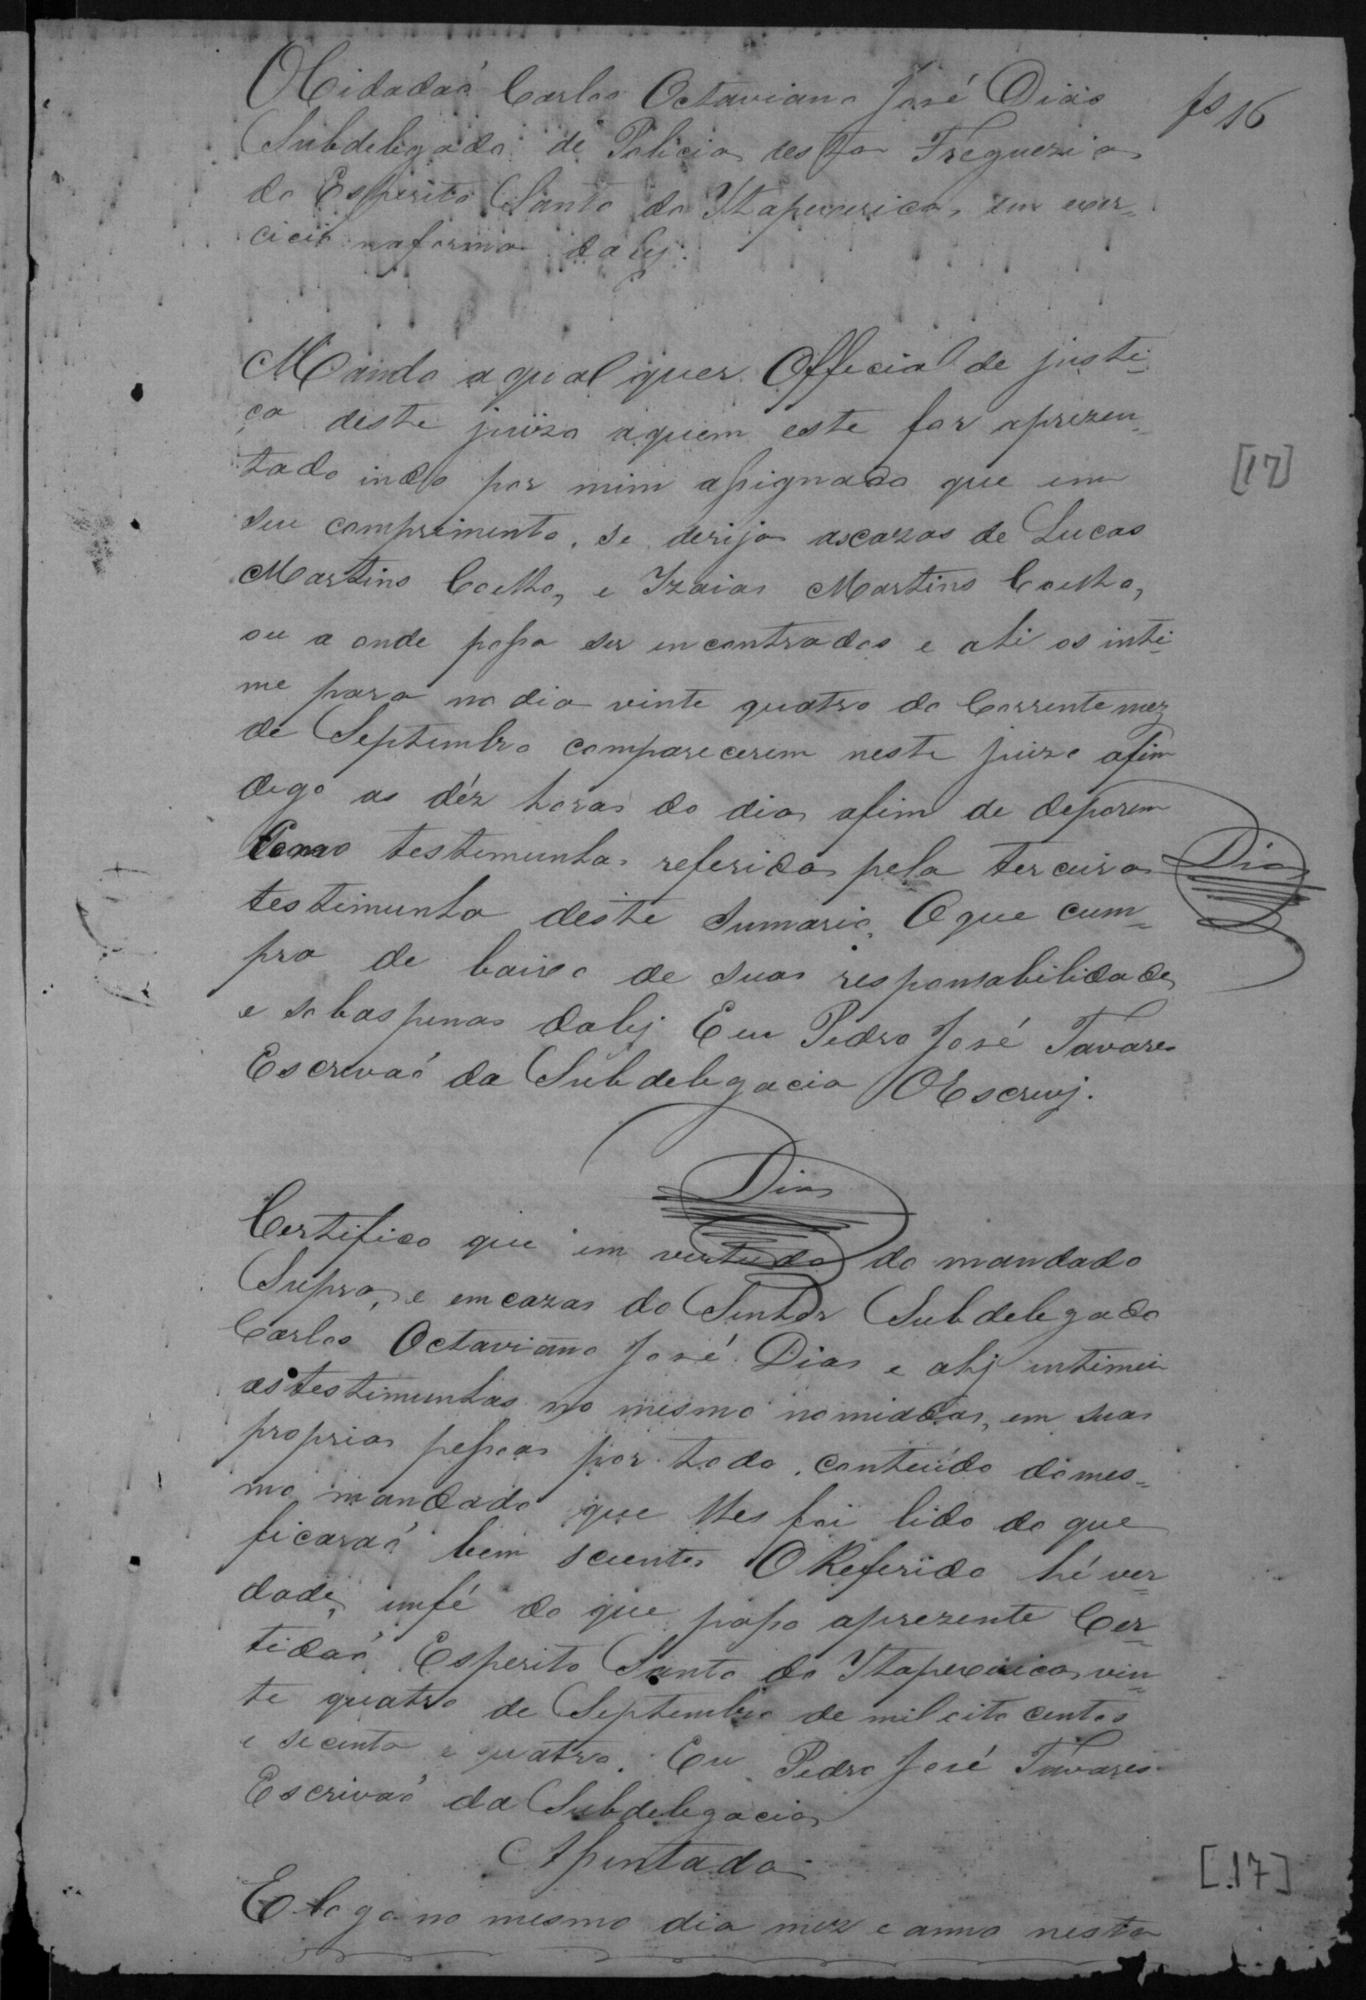 O Cidadaó Carlos Octaviano José Dias
fs 16
Subdelegado de Policia desta Freguezia
do Esperito Santo da Itapecerica, em exer=
cicio na forma da lej.
Mando a qual quer Official de justi=
ça deste juizo a quem este for aprezen=
tado indo por mim assignado que em
[17]
seu comprimento, se derija as cazas de Lucas
Martins Coelho, e Izaias Martins Coelho,
ou a onde possa ser encontrados e ahi os inti=
me para no dia vinte quatro do Corrente mez
de Septembro comparecerem neste juizo afim
digo as déz horas do dia afim de deporem
Como testemunhas referidas pela terceira
Dias
testimunha deste sumario. O que cum=
pra de baixo de suas responsabilidades
e sob as penas da lej. Eu Pedro José Tavares
Escrivaó da Subdelegacia O Escrevj.
Dias
Certifico que em vertude do mandado
Supra, e em cazas do Senhor Subdelegado
Carlos Octaviano José Dias e ahj intimei
as testimunhas no mesmo nomiadas, em suas
proprias pessoas por todo conteúdo do mes=
mo mandado que lhes foi lido do que
ficaraó bem scientes O Referido hé ver=
dade, em fé do que passo a prezente Cer=
tidaó Esperito Santo da Itapecirica, vin=
te quatro de Septembro de mil oito centos
e secenta e quatro. Eu Pedro José Tavares
Escrivaó da Subdelegacia
Assentada
E logo no mesmo dia mez e anno nesta
[17]